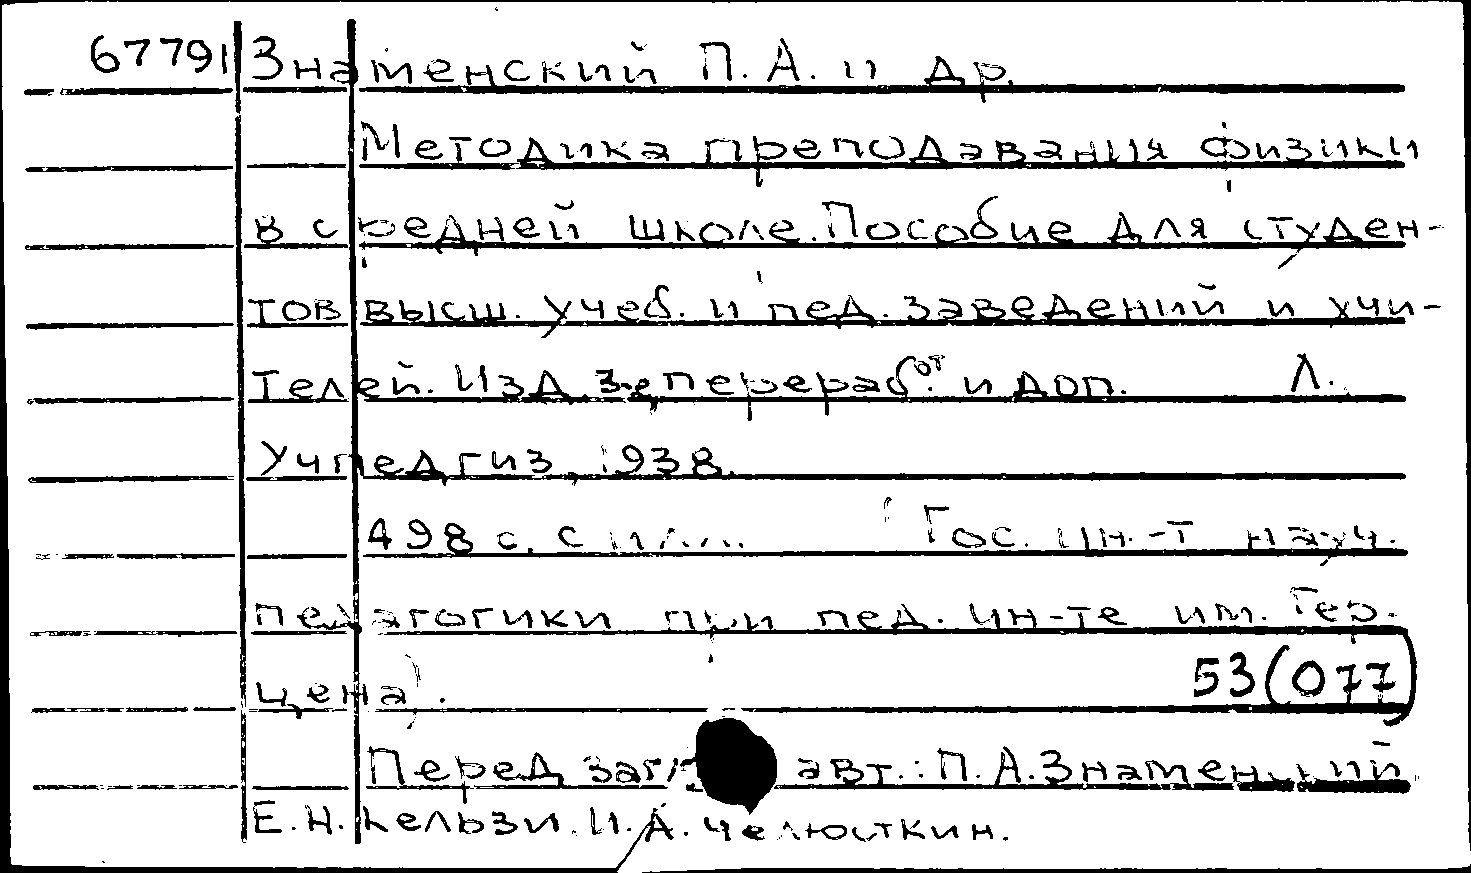 67791 Знаменский П.А. и др.
Методика преподавания физики
в средней школе. Пособие для студен-
тов высш. учеб. и пед. заведений и учи-
телей. Изд. 3-е, переработ. и доп. Л.
Учпедгиз, 1938.
498 с. с илл. (Гос. ин.-т науч.
педагогики при пед. ин-те им. Гер-
цена).
53(077)
Перед загл. авт.: П.А.Знаменский
Е.Н. Кельзи. И.А. Челюсткин.